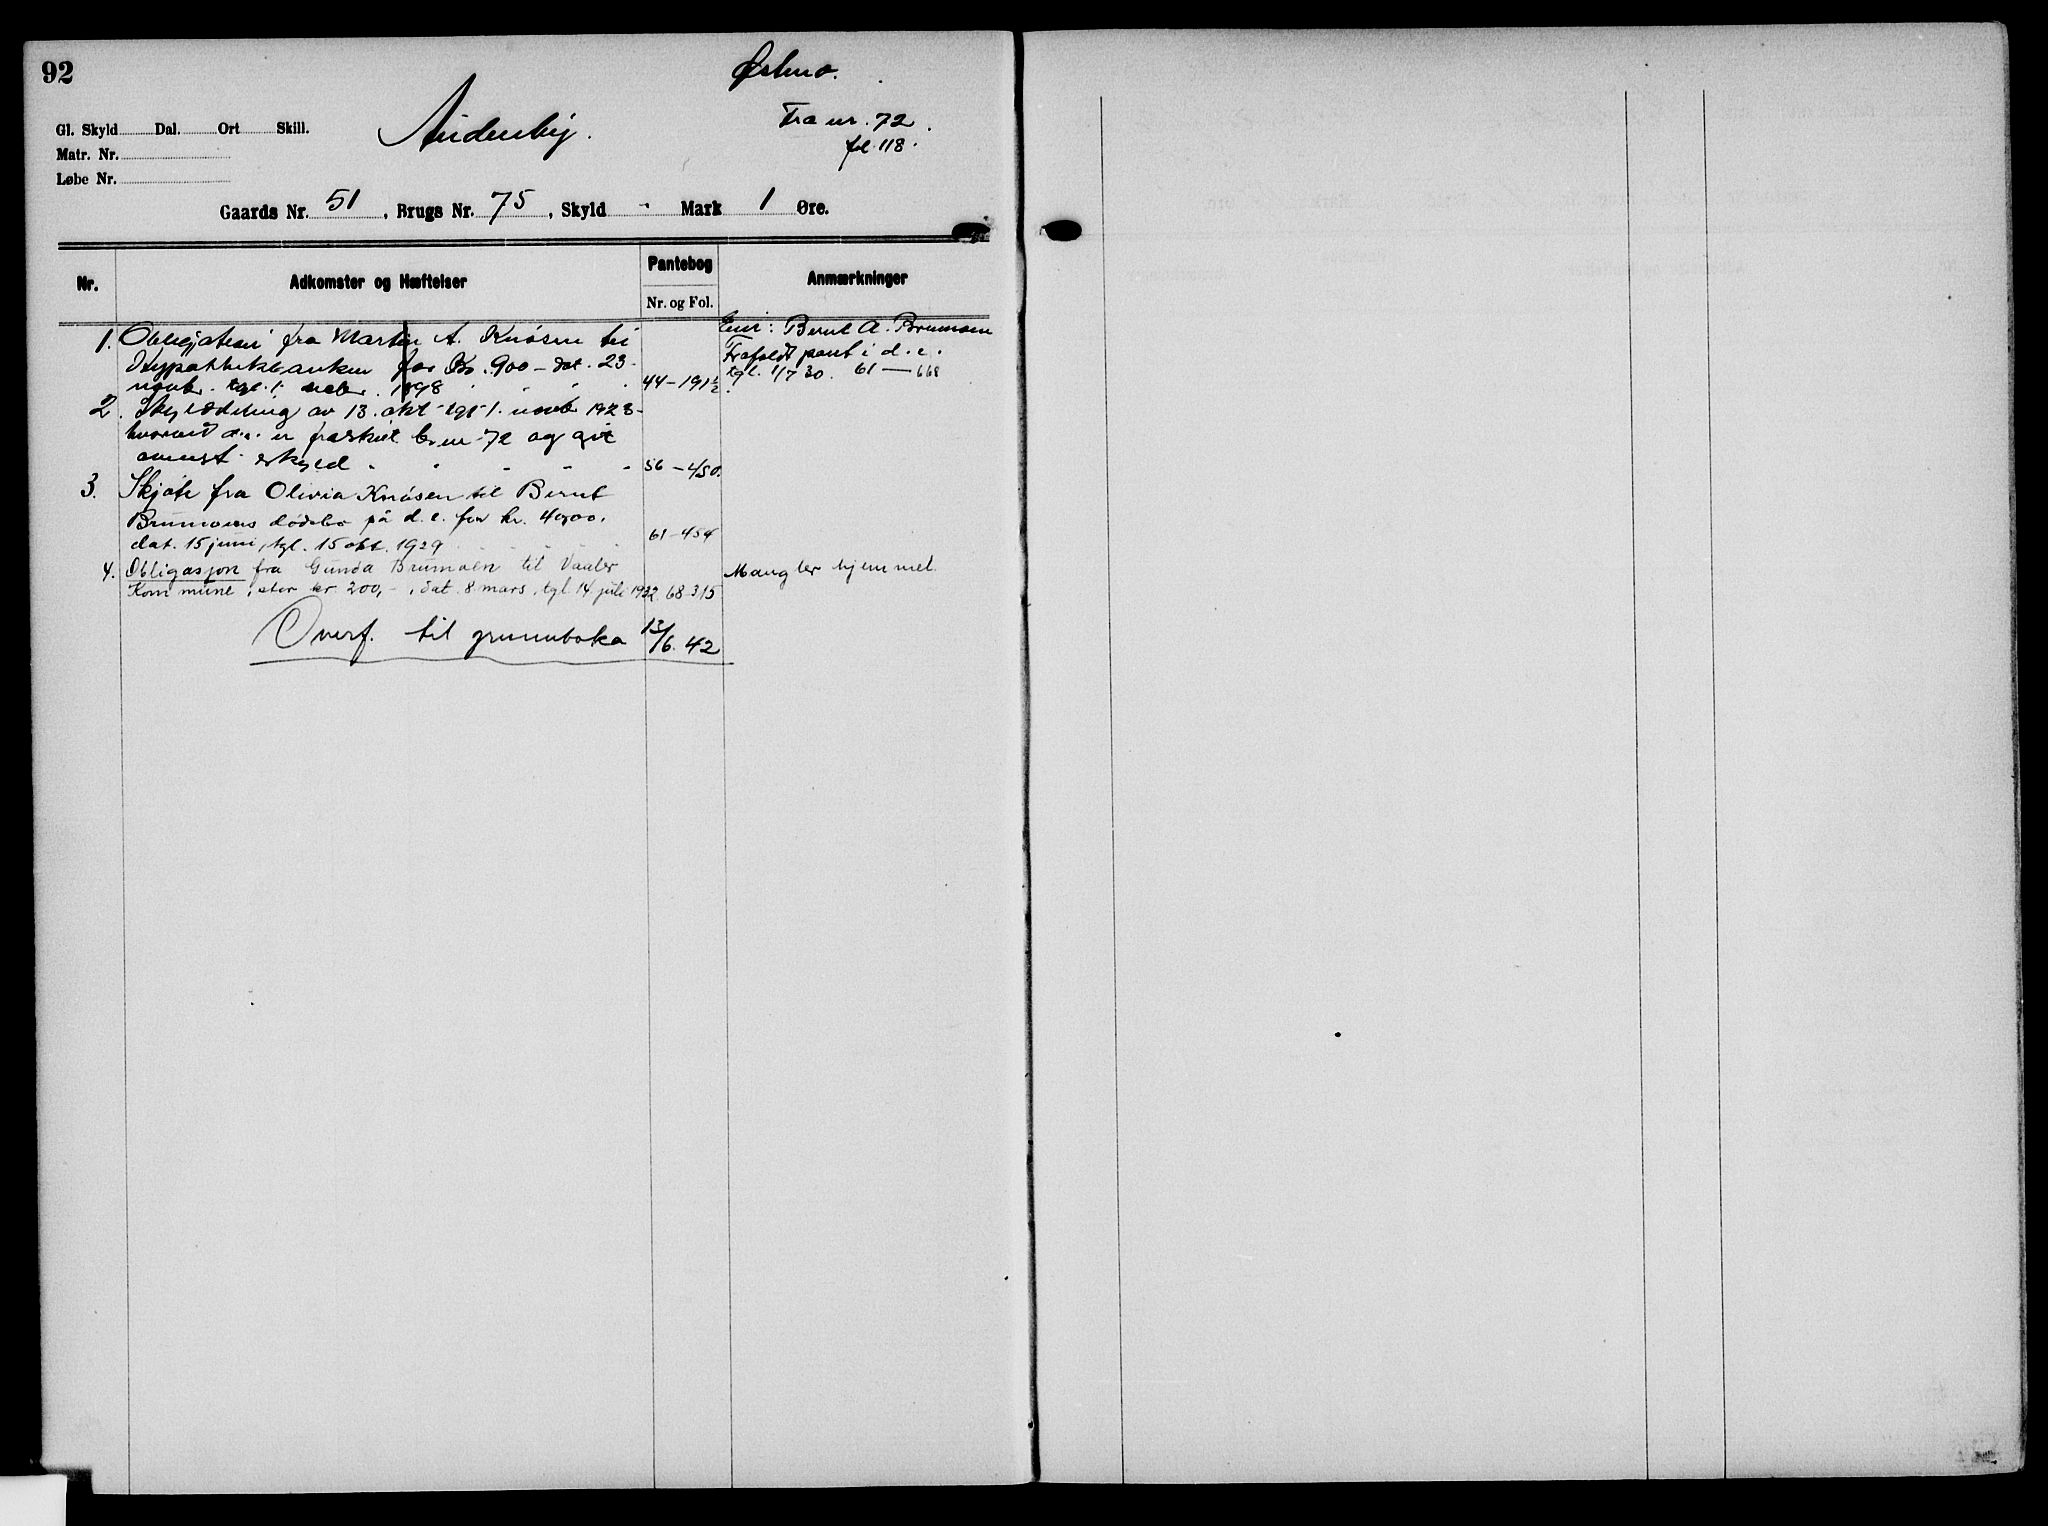 92
Østmo.
Audenby.
Fra nr. 72.
fol. 118.
Gl. Skyld Dal. Ort Skill.
Matr. Nr.
Løbe Nr.
Gaards Nr. 51, Brugs Nr. 75, Skyld - Mark 1 Øre.
Nr. Adkomster og Hæftelser Pantebog Anmærkninger
Nr. og Fol.
1. Obligation fra Martin A. Knøsen til
Hypothekbanken for Kr. 900 - dat. 23
novb. tgl. 1. 1898 44-191½
Eier: Bernt A. Brumoen
Frafaldt pant i d. e.
tgl. 1/7 30. 61 — 668
2. Skylddeling av 13. okt. tgl. 1. novb. 1923 -
hvorved d.e. er fraskilt br.nr. 72 og git
anført skyld 56 - 450.
3. Skjøte fra Olivia Knøsen til Bernt
Brumoens dødsbo på d. e. for kr. 4000.
dat. 15 juni, tgl. 15 okt. 1929 61-454
4. Obligasjon fra Gunda Brumoen til Vaaler
Kommune, stor kr. 200,-, dat. 8 mars, tgl 14 juli 1932 68-315
Mangler hjemmel.
Overf. til grunnboka 13/6. 42